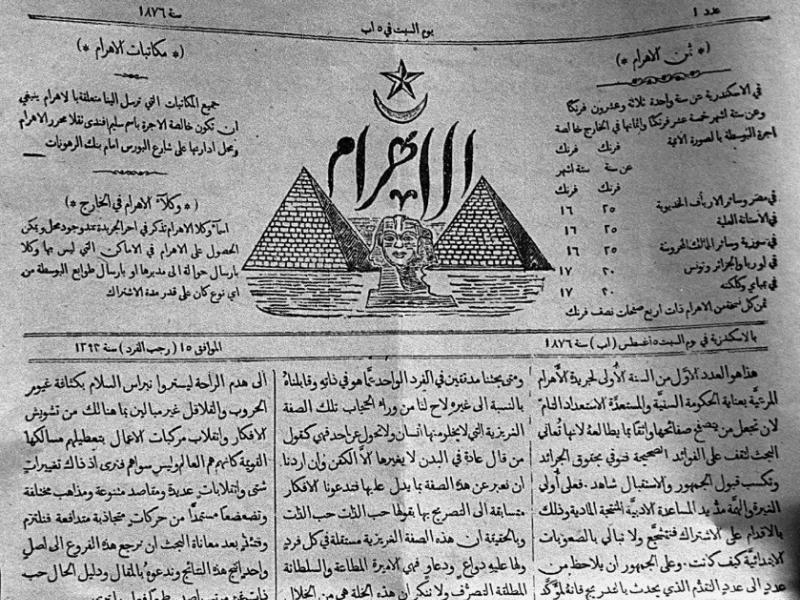 عدد ١
يوم السبت في ٥ اب
سنة ١٨٧٦
(* ثمن الاهرام *)
في الاسكندرية عن سنة واحدة ثلاثة وعشرون فرنكا
وعن ستة اشهر خمسة عشر فرنكا واثمانها في الخارج خالصة
اجرة البوسطة بالصورة الاتية
فرنك فرنك
عن سنة ستة اشهر
فرنك فرنك
في مصر وسائر الارياف الخديوية ٢٥ ١٦
في الاستانة العلية
في سورية وسائر الممالك المحروسة ٢٥ ١٦
في اوربا والجزائر وتونس
في بمباي وكلكته ٢٠ ١٧
ثمن كل نسخة من الاهرام ذات اربع صفحات نصف فرنك
الاهرام
(* مكاتبات الاهرام *)
جميع المكاتبات التي ترسل الينا متعلقة بالاهرام ينبغي
ان تكون خالصة الاجرة باسم سليم افندي نقلا محرر الاهرام
ومحل ادارتها على شارع البورس امام بنك الرهونات
(* وكلآء الاهرام في الخارج *)
اسمآء وكلا الاهرام تذكر في اخر الجريدة عند وجود محل ويمكن
الحصول على الاهرام في الاماكن التي ليس بها وكلا
بارسال حوالة الى مديرها او بارسال طوابع البوسطة من
اي نوع كان على قدر مدة الاشتراك
بالاسكندرية في يوم السبت ٥ اغسطس (اب) سنة ١٨٧٦
الموافق ١٥ (رجب الفرد) سنة ١٢٩٣
هذا هو العدد الاوّل من السنة الأولى لجريدة الأهرام
المرعيّة بعناية الحكومة السنيّة والمستعدّة الاستعداد التامّ
لان تجعل من يتصفح صفحاتها واثقا بما يطالعه لانها تُعاني
البحث لتقف على الفوائد الصحيحة فتوفي بحقوق الجرائد
وتكسب قبول الجمهور والاستقبال شاهد. فعلى أولي
الغيرة والهمّة مدّ يد المساعدة الادبيّة المنتجة المادية وذلك
بالاقدام على الاشتراك فتتشجّع ولا تبالي بالصعوبات
الابتدائيّة كيف كانت. وعلى الجمهور ان يلاحظ من
عدد الى عدد التقدّم الذي يحدث بالتدريج فانه لمؤكّد
ومتى بحثنا مدققين في الفرد الواحد عمّا هو في ذاته وقابلناهُ
بالنسبة الى غيره لاح لنا من ورآء الحجاب تلك الصفة
الغريزية التي لا يخلو منها انسان ولا تحول عن احد فهي كقول
من قال عادة في البدن لا يغيرها الاّ الكفن وان اردنا
ان نعبر عن هذه الصفة بما يدل عليها فتدعونا الافكار
متسابقة الى التصريح بها بقولها حب الذات حب الذات
وبالحقيقة ان هذه الصفة الغريزية مستقلة في كل فردٍ
ولها عليه دواع ودعاوٍ فهي الاميرة المطاعة والسلطانة
المطلقة التصرّف ولا ننكر ان هذه الخلة هي من الخلال
الى هدم الراحة ليستروا نبراس السلام بكثافة غيوم
الحروب والقلاقل غير مبالين بما هنالك من تشويش
الافكار وانقلاب مركبات الاعمال بتعطيلهم مسالكها
القويمة كانهم هم العالم وليس سواهم فنرى اذ ذاك تغييرات
شتى وانقلابات عديدة ومقاصد متنوعة ومذاهب مختلفة
وتضعضعا مستمدًّا من حركات متجاذبة متدافعة فنلتزم
وقتئذٍ بعد معاناة البحث ان نرجع هذه الفروع الى اصلٍ
واحد انتج هذه النتائج وندعوهُ بالمقال ودليل الحال حب